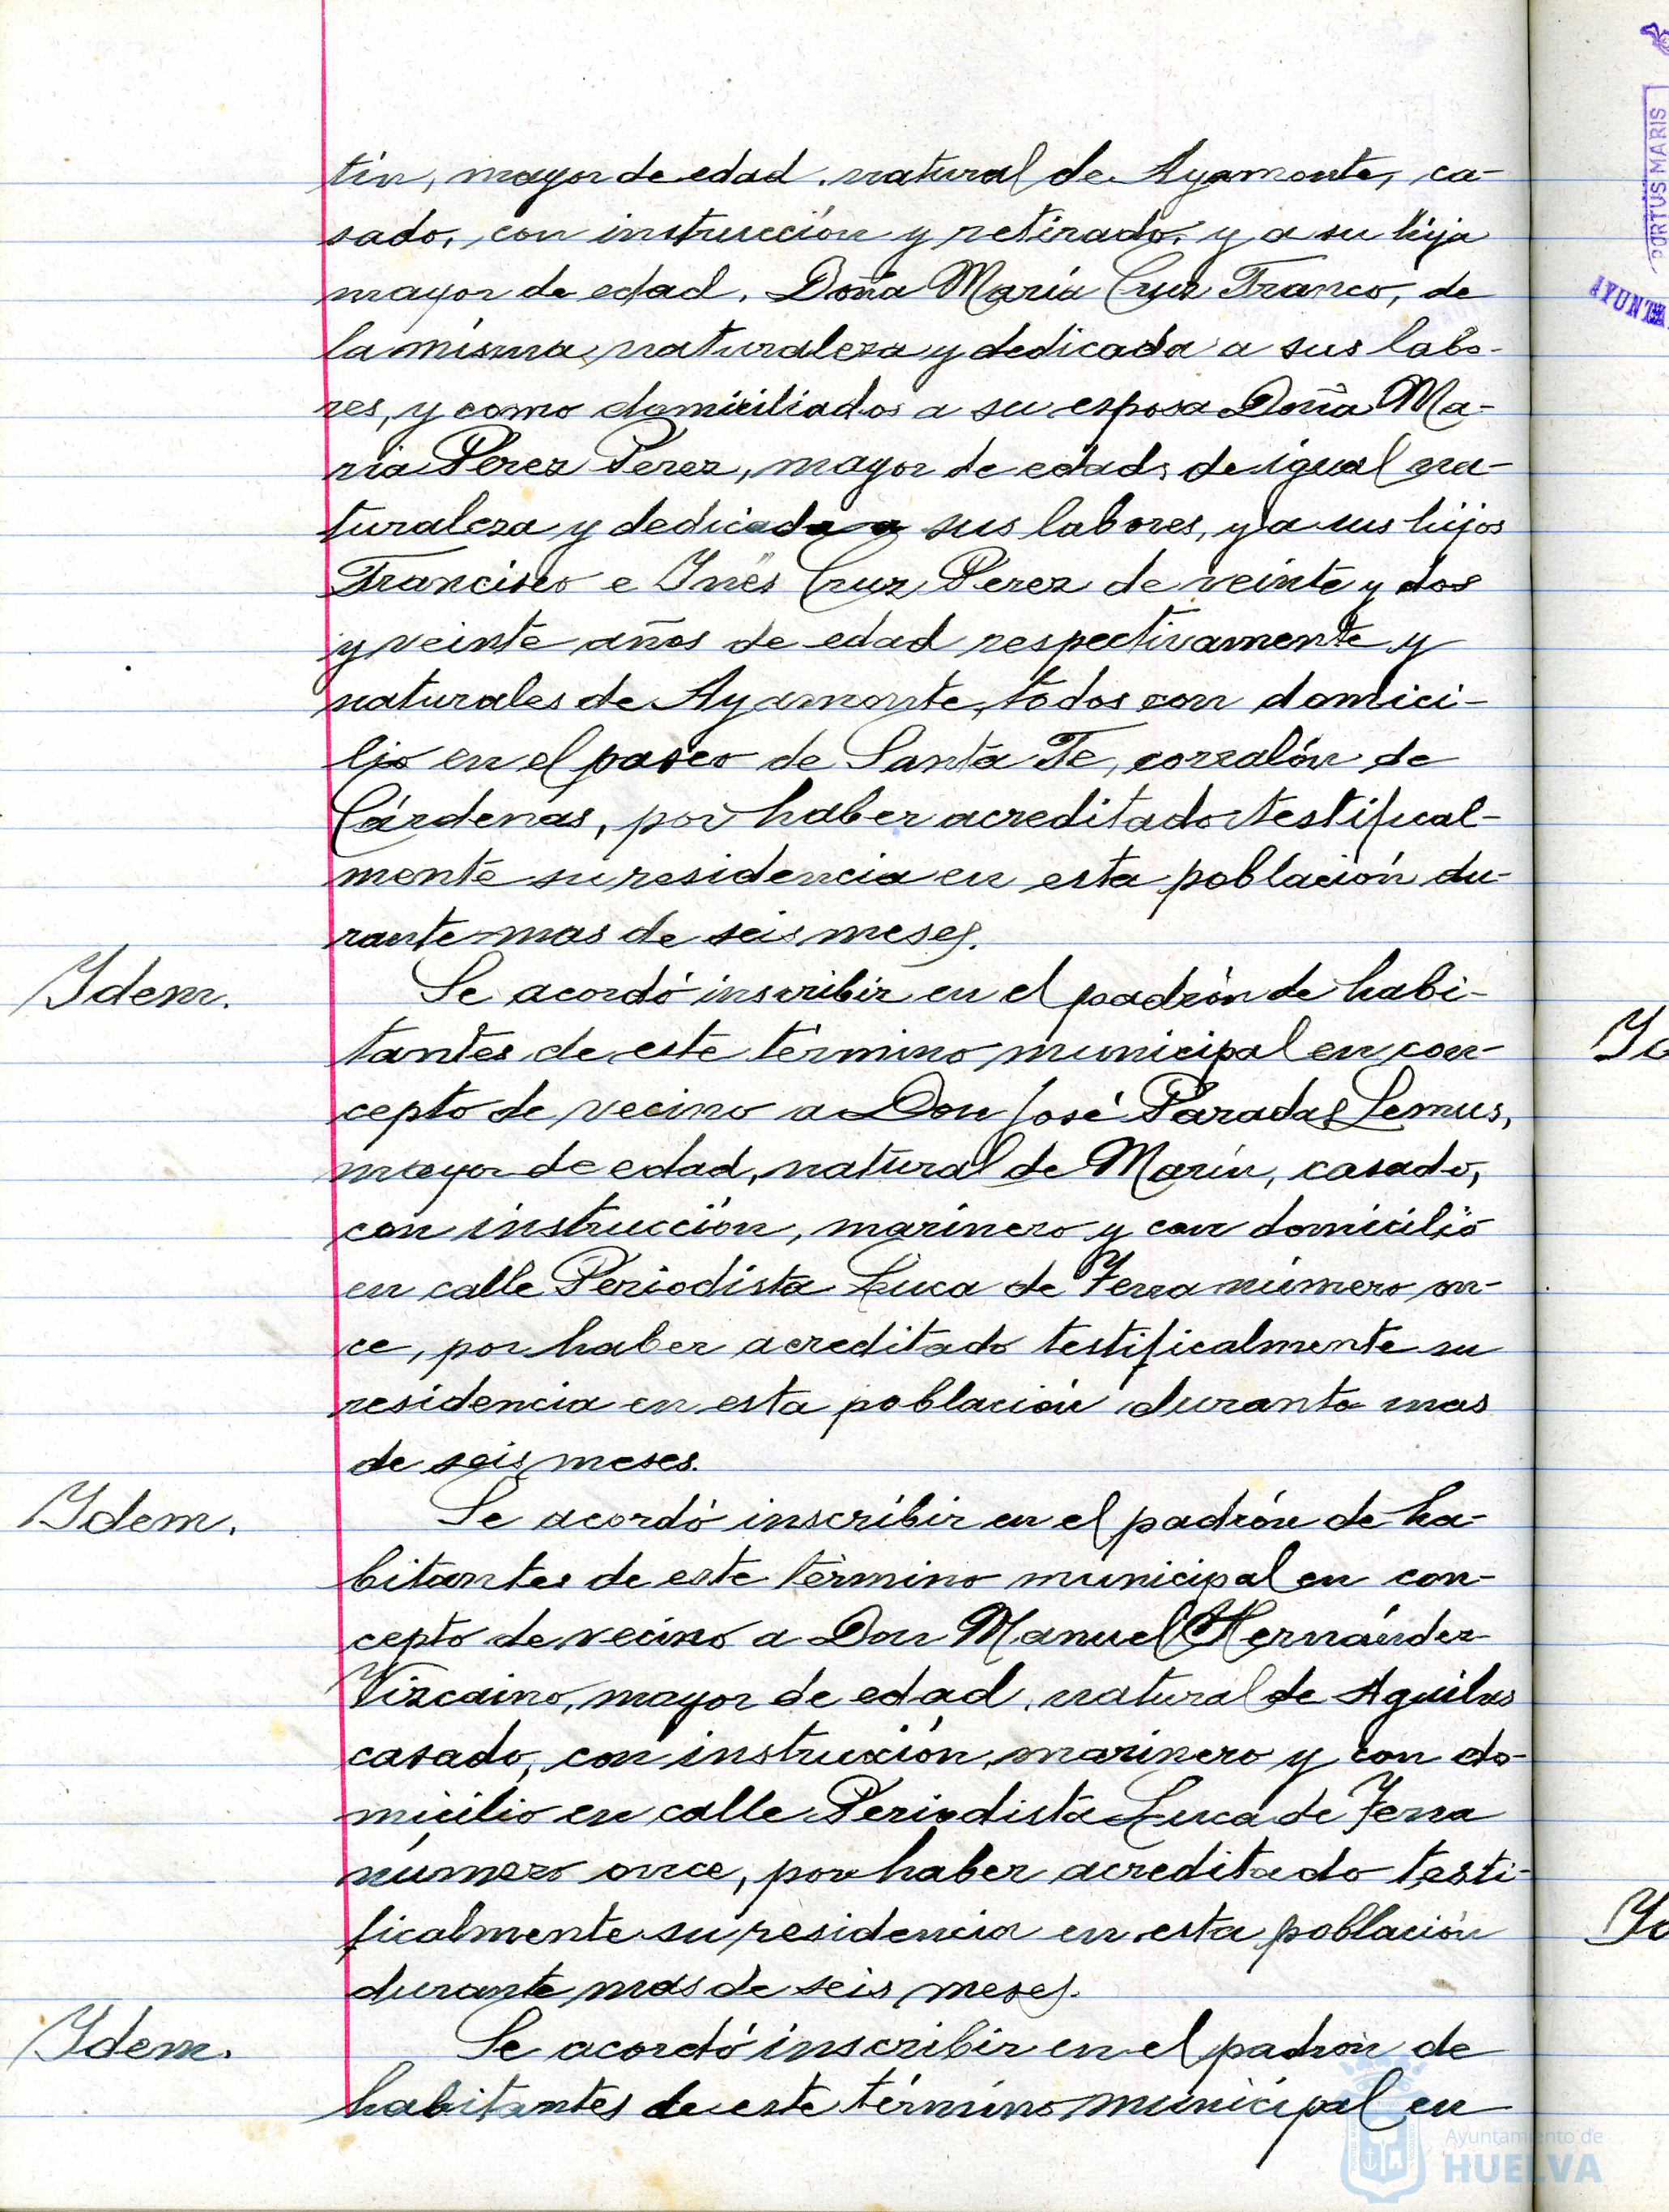 tin, mayor de edad, natural de Ayamonte, ca-
sado, con instrucción y retirado, y a su hija
mayor de edad, Doña María Cruz Franco, de
la misma naturaleza y dedicada a sus labo-
res, y como domiciliados a su esposa Doña Ma-
ria Perez Perez, mayor de edad, de igual na-
turaleza y dedicada a sus labores, y a sus hijos
Francisco e Inés Cruz Perez de veinte y dos
y veinte años de edad respectivamente y
naturales de Ayamonte, todos con domici-
lio en el paseo de Santa Fe, corralón de
Cárdenas, por haber acreditado testifical-
mente su residencia en esta población du-
rante mas de seis meses.
Idem.
Se acordó inscribir en el padrón de habi-
tantes de este término municipal en con-
cepto de vecino a Don José Paradas Lemus,
mayor de edad, natural de Marín, casado,
con instrucción, marinero y con domicilio
en calle Periodista Luca de Tena número on-
ce, por haber acreditado testificalmente su
residencia en esta población durante mas
de seis meses.
Idem.
Se acordó inscribir en el padrón de ha-
bitantes de este término municipal en con-
cepto de vecino a Don Manuel Hernández
Vizcaino, mayor de edad, natural de Aguilas
casado, con instrucción, marinero y con do-
micilio en calle Periodista Luca de Tena
número once, por haber acreditado testi-
ficalmente su residencia en esta población
durante mas de seis meses.
Idem.
Se acordó inscribir en el padrón de
habitantes de este término municipal en
PORTUS MARIS
AYUNTA
Ayuntamiento de
HUELVA